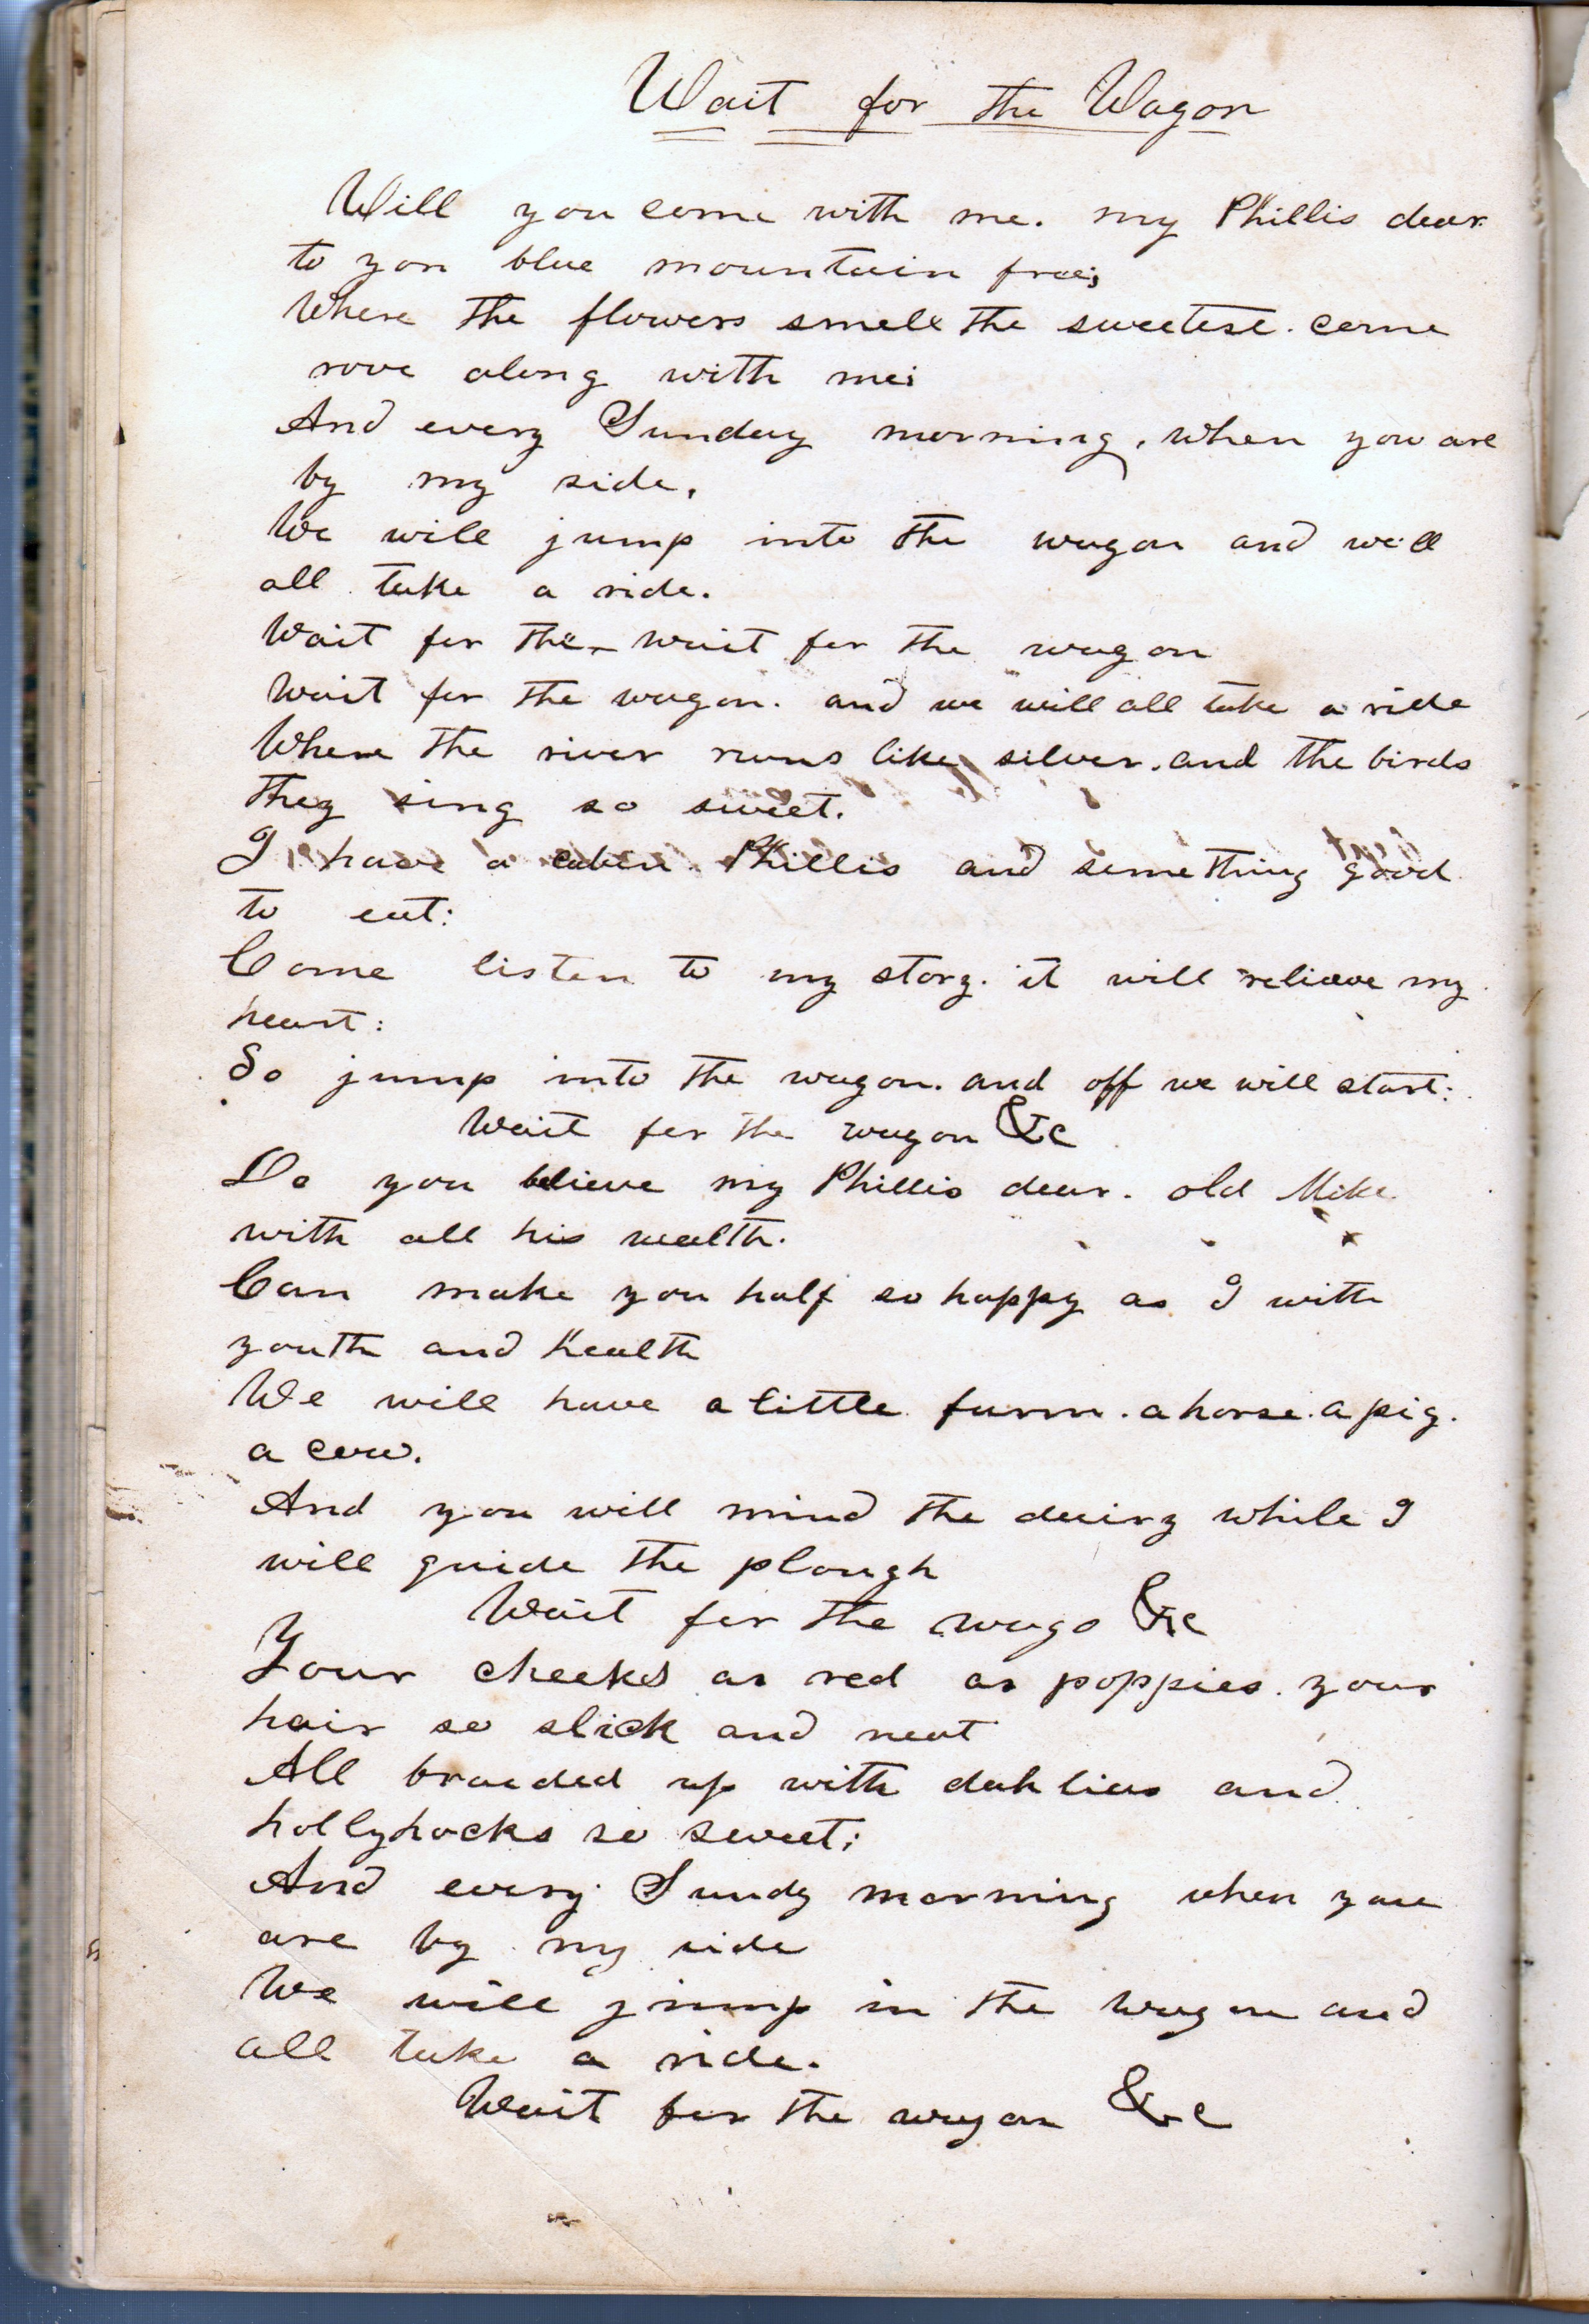 Wait for the Wagon
Will you come with me. my Phillis dear
to yon blue mountain free;
Where the flowers smell the sweetest. come
rove along with me;
And every Sunday morning, when you are
by my side,
We will jump into the wagon and will
all take a ride.
Wait for the - wait for the wagon
Wait for the wagon. and we will all take a ride
Where the river runs like silver. and the birds
they sing so sweet.
I have a cabin Phillis and something good
to eat:
Come listen to my story. it will relieve my
heart:
So jump into the wagon. and off we will start:
Wait for the wagon &c
Do you believe my Phillis dear. old Mike
with all his wealth.
Can make you half so happy as I with
youth and health
We will have a little farm. a horse. a pig.
a cow.
And you will mind the dairy while I
will guide the plough
Wait for the wago &c
Your cheeks as red as poppies. your
hair so slick and neat
All braided up with dahlias and
hollyhocks so sweet;
And every Sundy morning when you
are by my side
We will jump in the wagon and
all take a ride.
Wait for the wagon &c